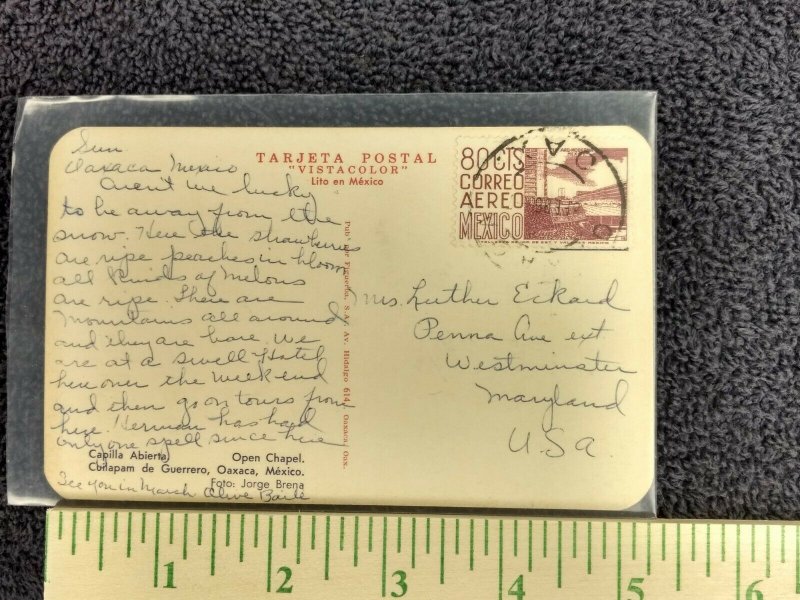 Sun
Oaxaca Mexico
Arent we lucky
to be away from the
snow. Here the strawberries
are ripe peaches in bloom
all kinds of melons
are ripe. There are
Mountains all around
and they are bare. We
are at a swell Hotel
here over the weekend
and then go on tours from
here. Herman has had
only one spell since here
See you in March Olive
TARJETA POSTAL
"VISTACOLOR"
Lito en México
80 CTS
CORREO
AEREO
MEXICO
Figueroa, S.A. Av. Hidalgo 614, Oaxaca, Oax.
Mrs. Luther Eckard
Penna Ave ext
Westminster
Maryland
U.S.A.
Capilla Abierta, Open Chapel.
Cuilapam de Guerrero, Oaxaca, México.
Foto: Jorge Brena
1 2 3 4 5 6